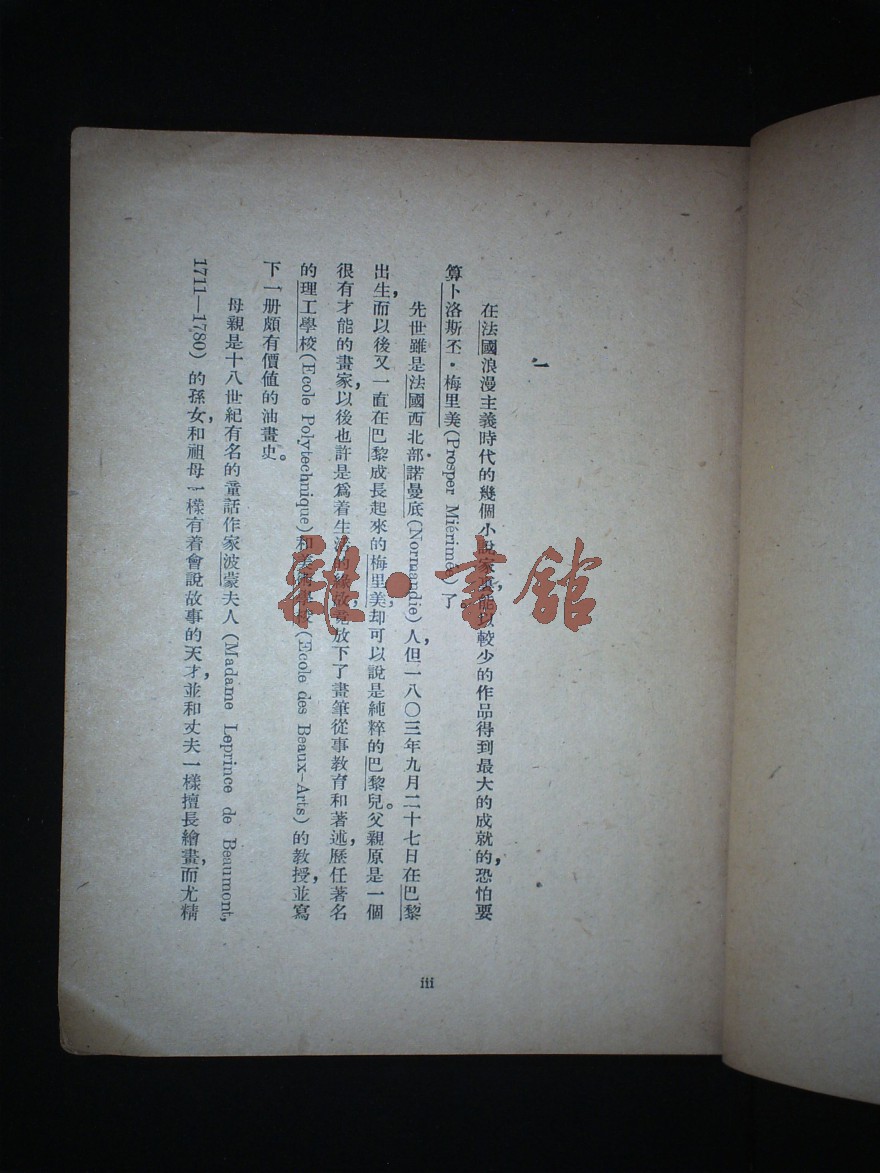 一
在法國浪漫主義時代的幾個小說家裏,能以較少的作品得到最大的成就的,恐怕要
算卜洛斯丕·梅里美(Prosper Miérimés)了
先世雖是法國西北部諾曼底(Normandie)人,但一八〇三年九月二十七日在巴黎
出生,而以後又一直在巴黎成長起來的梅里美,却可以說是純粹的巴黎兒。父親原是一個
很有才能的畫家,以後也許是爲着生活的緣故,竟放下了畫筆從事教育和著述,歷任著名
的理工學校(Ecole Polytechnique)和美術學校(Ecole des Beaux-Arts)的教授,並寫
下一册頗有價値的油畫史。
母親是十八世紀有名的童話作家波蒙夫人(Madame Leprince de Beaumont,
1711—1780)的孫女,和祖母一樣有着會說故事的天才,並和丈夫一樣擅長繪畫,而尤精
iii
雜·書館